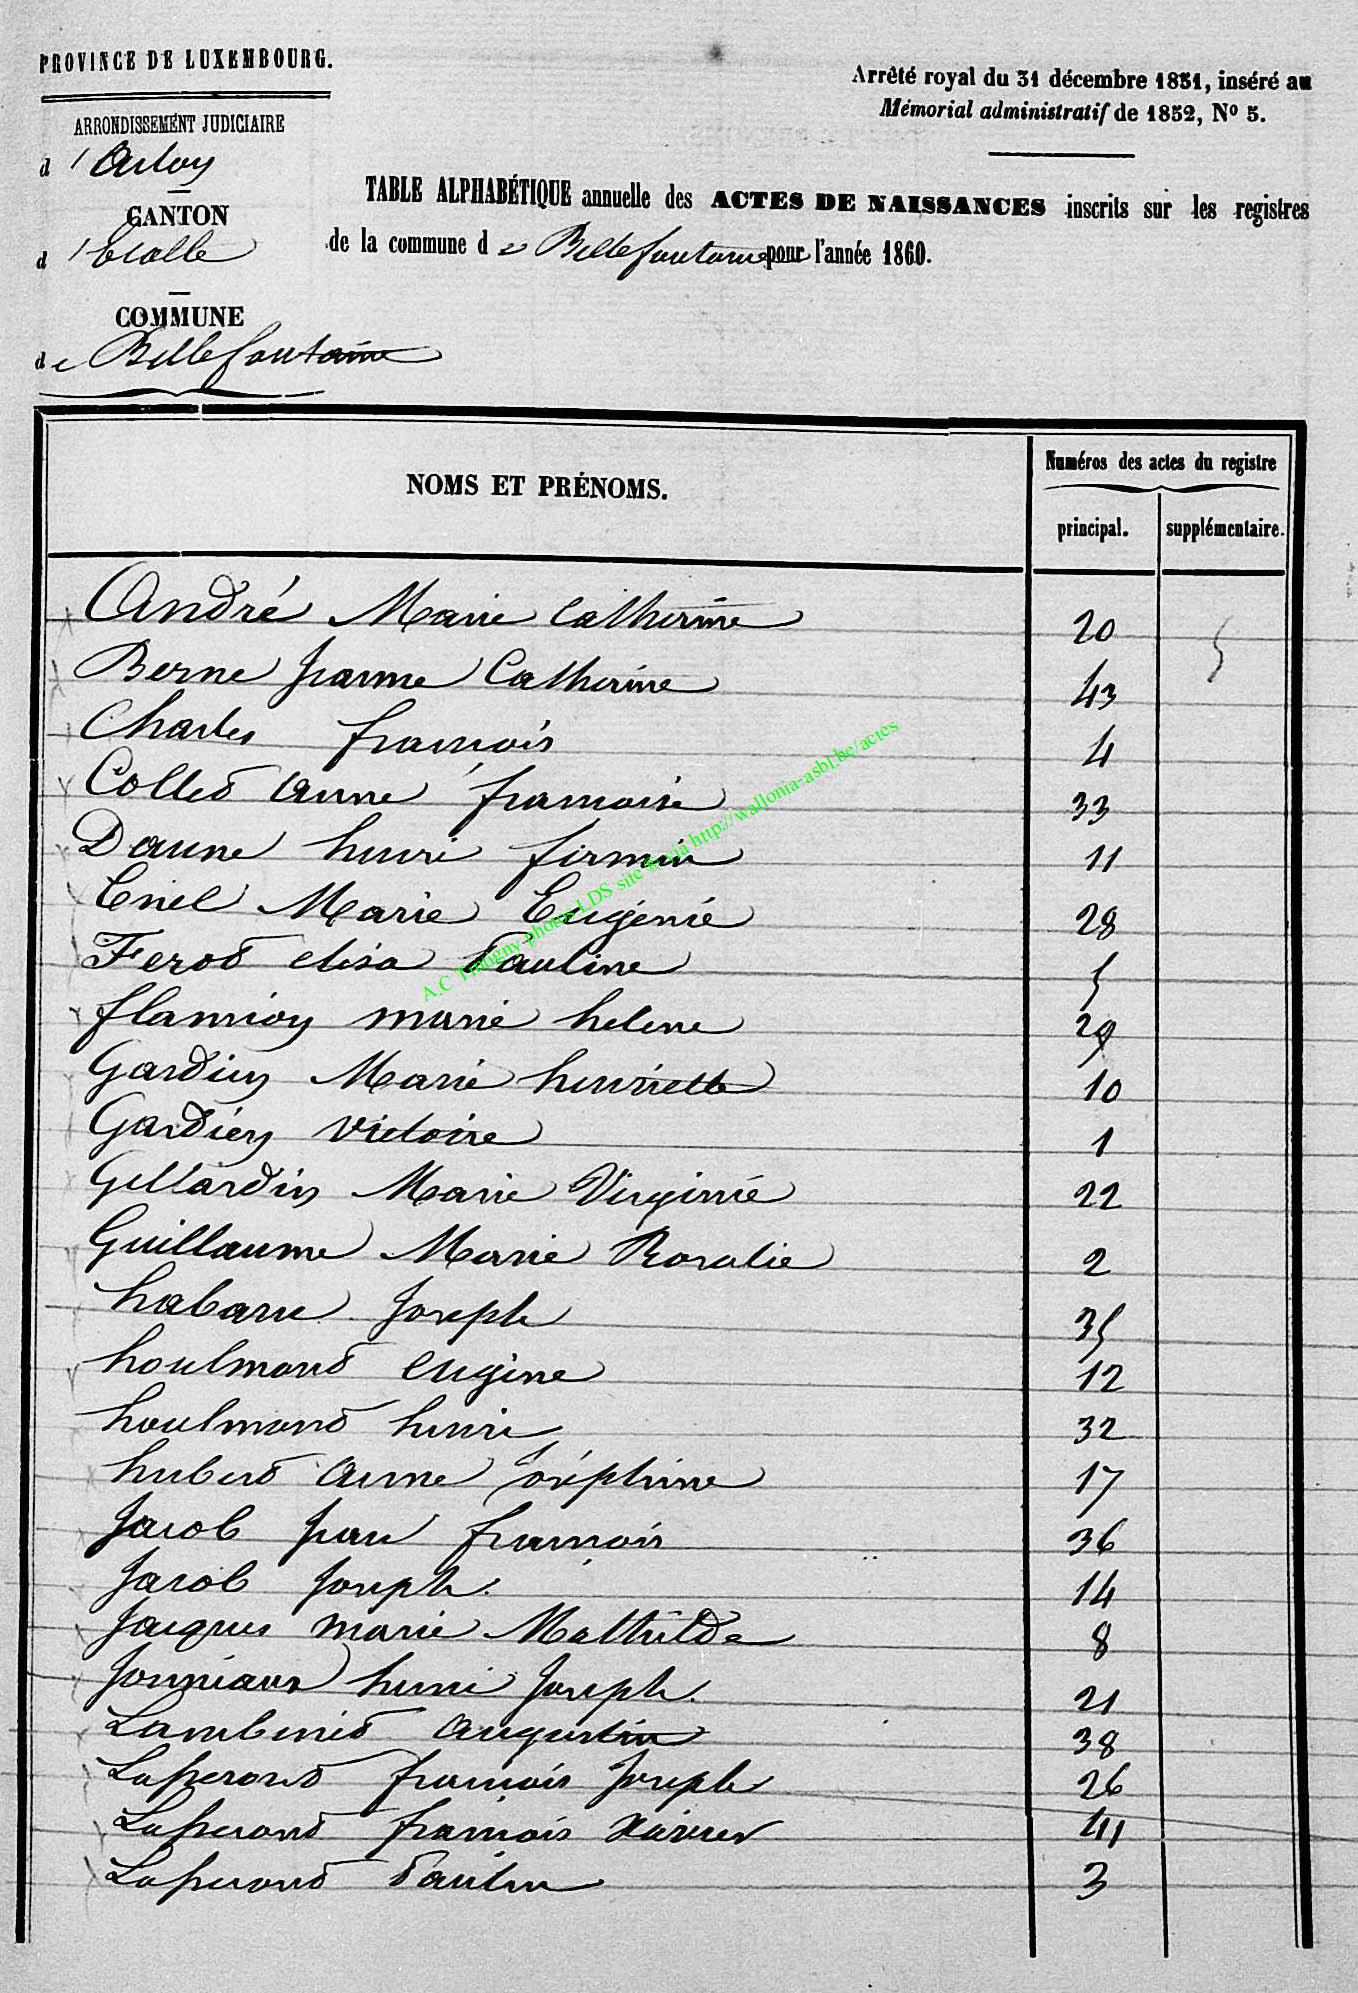 PROVINCE DE LUXEMBOURG.
Arrêté royal du 31 décembre 1851, inséré au
Mémorial administratif de 1852, Nº 5.
ARRONDISSEMENT JUDICIAIRE
d'Arlon
CANTON
d'Etalle
COMMUNE
de Bellefontaine
TABLE ALPHABÉTIQUE annuelle des ACTES DE NAISSANCES inscrits sur les registres
de la commune de Bellefontaine pour l'année 1860.
NOMS ET PRÉNOMS.
Numéros des actes du registre
principal.
supplémentaire.
André Marie Catherine 20
Berne Jeanne Catherine 43
Charles françois 4
Colled anne françoise 33
Daune henri firmin 11
Eniel Marie Eugénie 28
Ferod elisa Pauline 5
flamion marie helene 29
Gardien Marie henriette 10
Gardien victoire 1
Gillardin Marie Virginie 22
Guillaume Marie Rosalie 2
habaru Joseph 35
houlmond eugène 12
houlmond henri 32
huberd anne Joséphine 17
Jacob Jean françois 36
Jacob Joseph 14
Jacques marie Mathilde 8
Jonniaux henri Joseph 21
Lambinéd augustin 38
Laperond françois Joseph 26
Laperond françois Xavier 41
Laperond Paulin 3
A.C Tintigny photos LDS site & via http://wallonia-asbl.be/actes